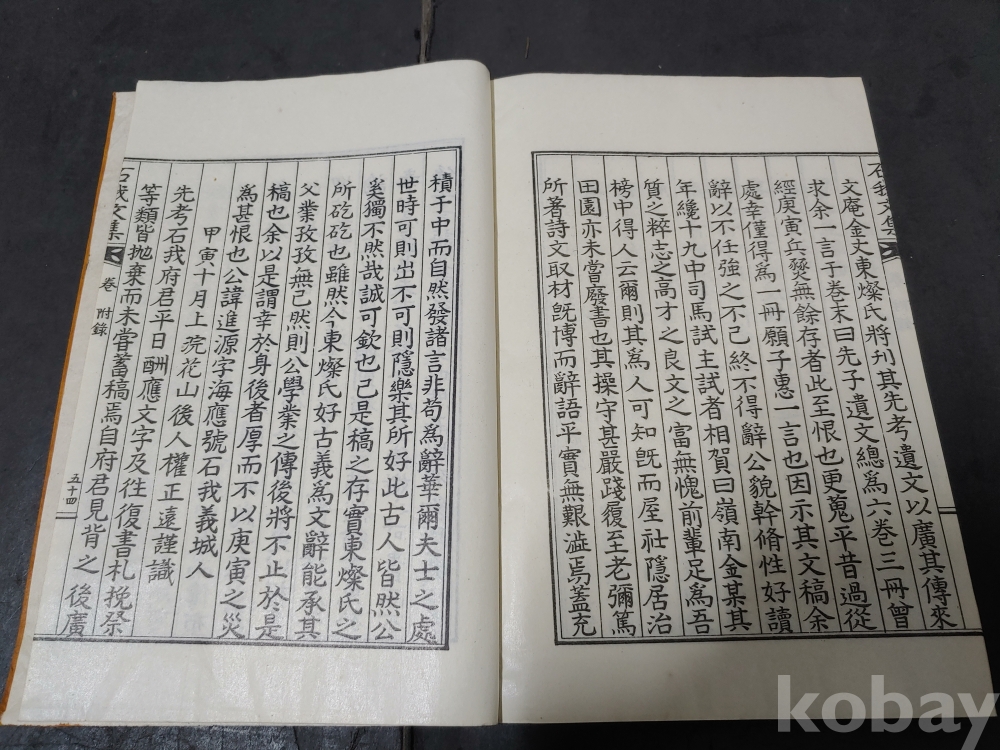 石我文集
文庵金丈東燦氏將刊其先考遺文以廣其傳來
求余一言子卷末曰先子遺文總爲六卷三冊曾
經庚寅兵燹無餘存者此至恨也更蒐平昔過從
處幸僅得爲一冊願子惠一言也因示其文稿余
辭以不任強之不已終不得辭公貌幹脩性好讀
年纔十九中司馬試主試者相賀曰嶺南金某其
質之粹志之高才之良文之富無愧前輩足爲吾
榜中得人云爾則其爲人可知旣而屋社隱居治
田園亦未嘗廢書也其操守甚嚴踐履至老彌篤
所著詩文取材旣博而辭語平實無艱澁焉蓋充
積于中而自然發諸言非苟爲辭華爾夫士之處
世時可則出不可則隱樂其所好此古人皆然公
奚獨不然哉誠可欽也已是稿之存實東燦氏之
所矻矻也雖然今東燦氏好古義爲文辭能承其
父業孜孜無已然則公學業之傳後將不止於是
稿也余以是謂幸於身後者厚而不以庚寅之災
爲甚恨也公諱進源字海應號石我義城人
甲寅十月上浣花山後人權正遠謹識
先考石我府君平日酬應文字及往復書札挽祭
等類皆抛棄而未嘗蓄稿焉自府君見背之後廣
石我文集
卷
附錄
五十四
kobay